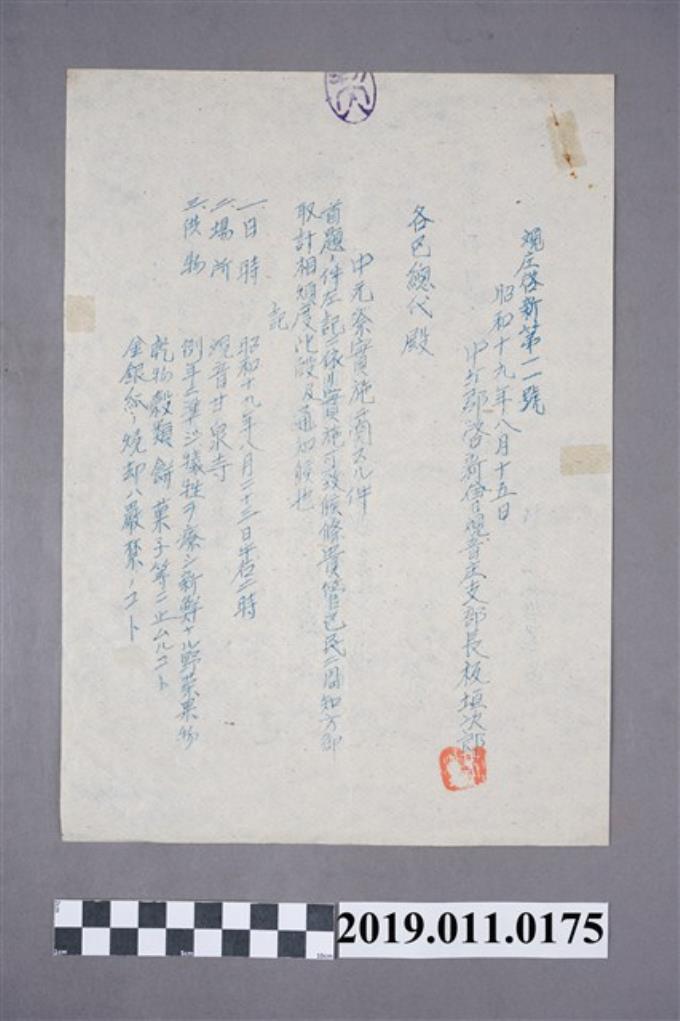 觀庄啓新第一一號
昭和十九年八月十五日
中壢郡啓新會觀音庄支部長板垣次郎
各區總代殿
中元祭實施ニ關スル件
首題ノ件左記ニ依リ實施可致候條貴管區民ニ周知方御
取計相煩度此段及通知候也
記
一、日時 昭和十九年八月二十三日午后二時
二、場所 觀音甘泉寺
三、供物 例年ニ準ジ犠牲ヲ廢シ新鮮ナル野菜果物
乾物穀類餅菓子等ニ止ムルコト
金銀紙ノ燒却ハ嚴禁ノコト
2019.011.0175